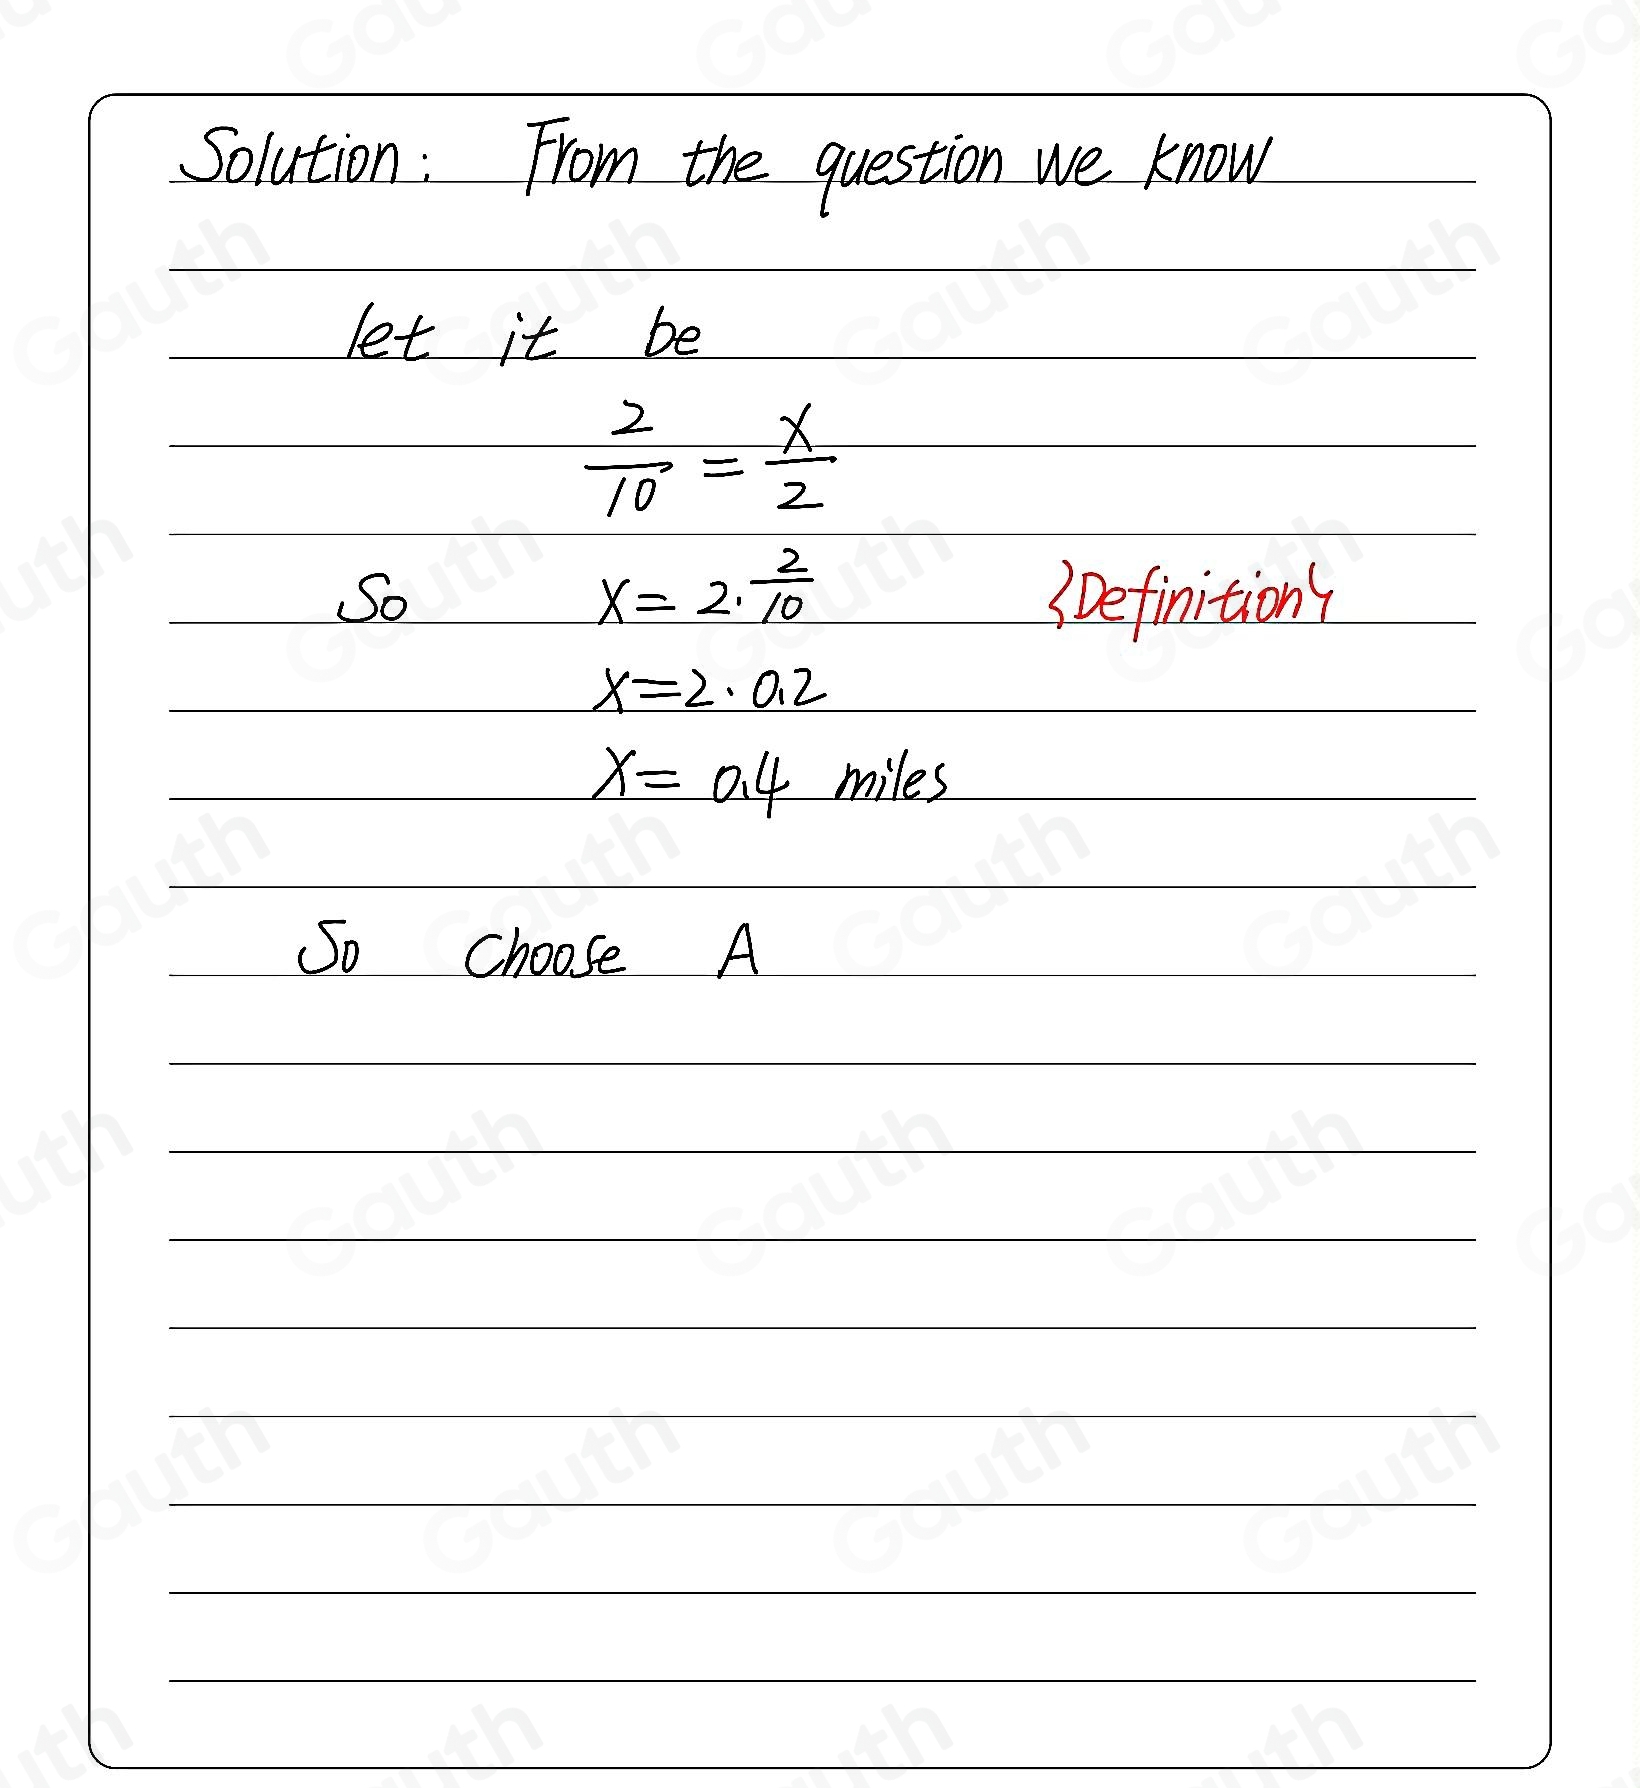 Solution: From the question we know
let it be
2/10 = x/2
So x = 2·2/10 {Definition}
x = 2·0.2
x = 0.4 miles
So choose A
Gauth